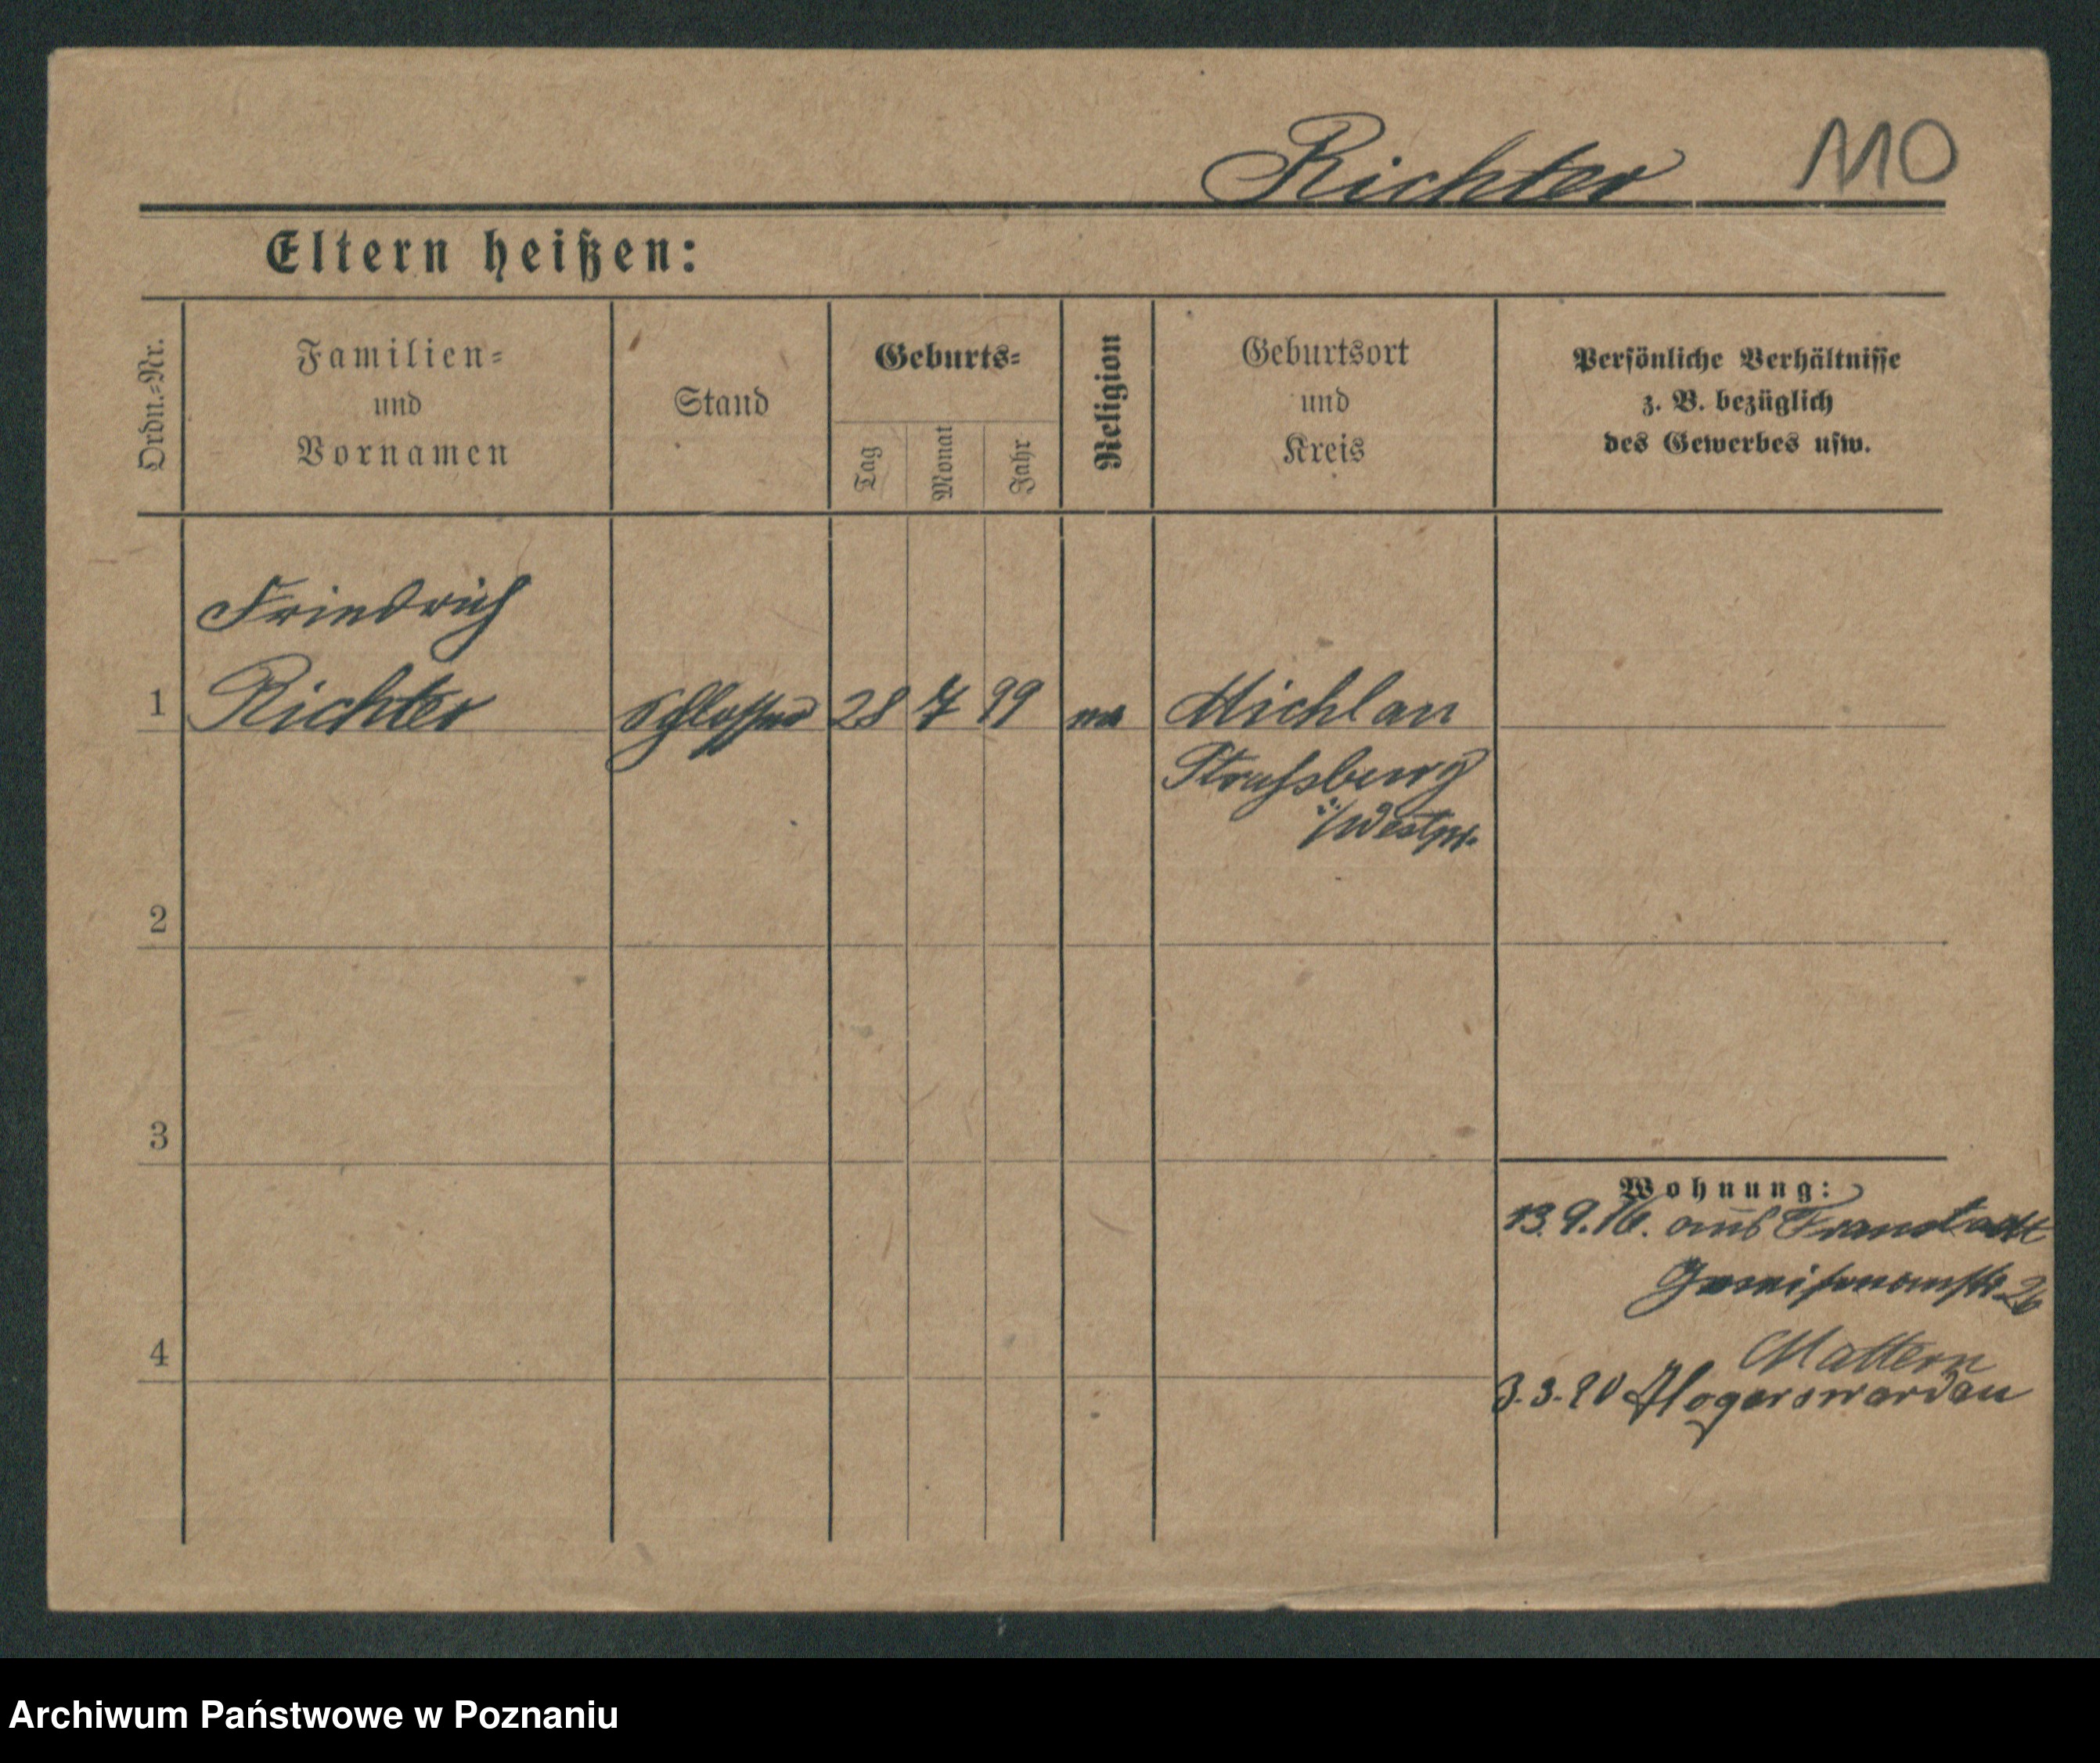 Richter 110
Eltern heißen:
Ordn.-Nr.
Familien-
und
Vornamen
Stand
Geburts-
Tag
Monat
Jahr
Religion
Geburtsort
und
Kreis
Persönliche Verhältnisse
z. B. bezüglich
des Gewerbes usw.
Friedrich
1 Richter Schlosser 28 7 99 Michlau
Strassburg
i/Westpr.
2
3
Wohnung:
13.9.16. aus Fraustadt
Gneisenaustr 26
4 Mattern
3.3.20 Hoyerswerda
Archiwum Państwowe w Poznaniu